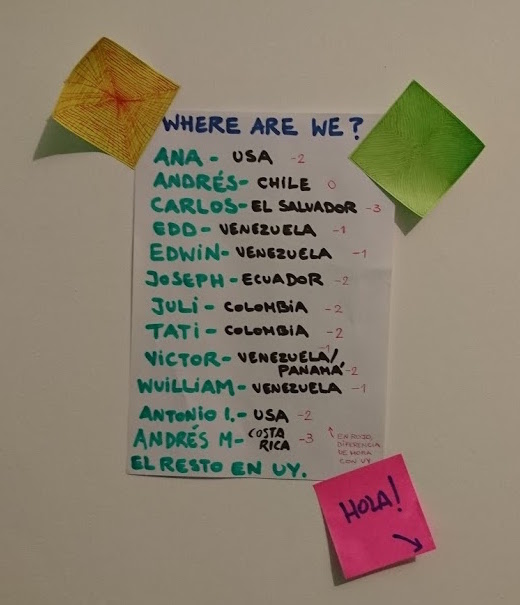 WHERE ARE WE?
ANA - USA -2
ANDRÉS - CHILE 0
CARLOS - EL SALVADOR -3
EDD - VENEZUELA -1
EDWIN - VENEZUELA -1
JOSEPH - ECUADOR -2
JULI - COLOMBIA -2
TATI - COLOMBIA -2
VICTOR - VENEZUELA/ -1
PANAMÁ -2
WUILLIAM - VENEZUELA -1
ANTONIO I. - USA -2
ANDRÉS M - COSTA RICA -3
EN ROJO,
DIFERENCIA
DE HORA
CON UY
EL RESTO EN UY.
HOLA!